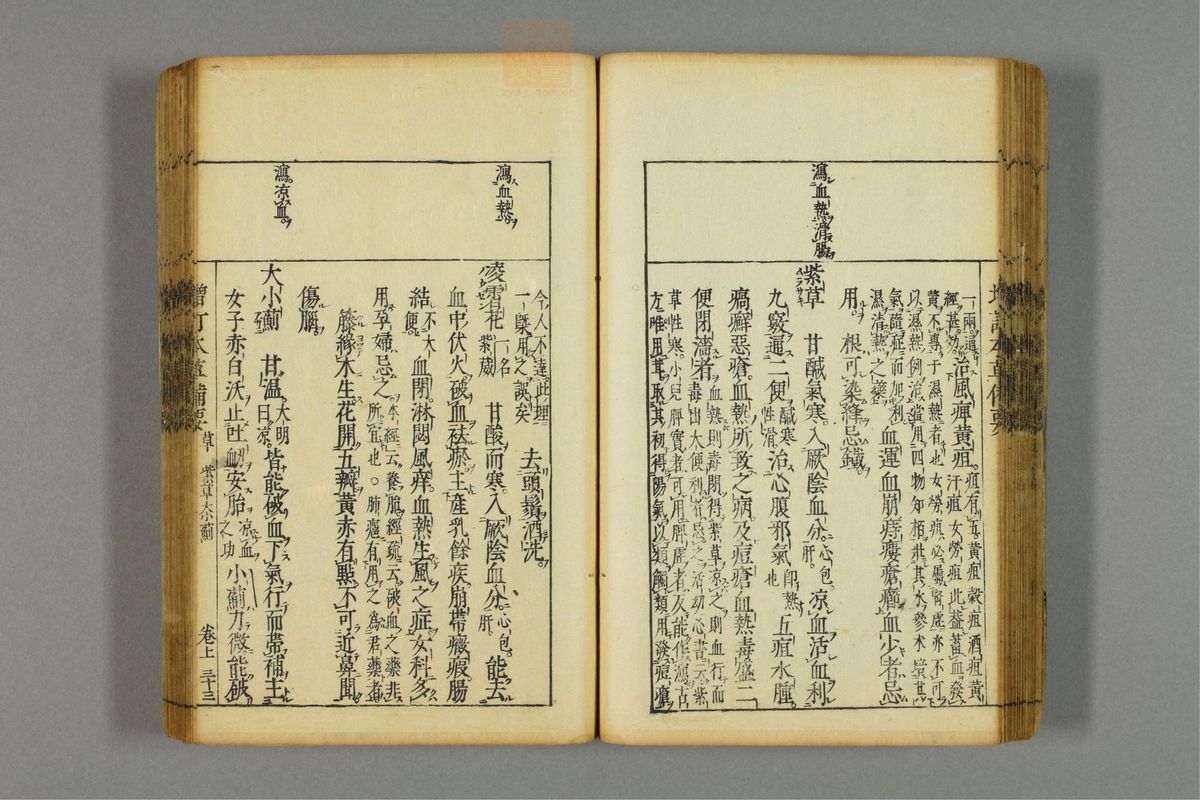 瀉血熱滑腸
一兩。通經甚効。治風痺黃疸。疸有五黃疸穀疸酒疸黃汗疸女勞疸此蓋蓄血發
黃不專于濕熱者也女勞疸必屬腎虛亦不可以濕熱例治當用四物知柏壯其水參朮培其
氣隨症而加利濕清熱之藥血運血崩痔瘻瘡癰血少者忌
用。根可染絳忌鐵。
紫草 甘鹹氣寒入厥陰血分。心包。肝。涼血活血利
九竅通二便鹹寒性滑治心腹邪氣即熱也五疸水腫
瘑癬惡瘡血熱所致之病及痘瘡血熱毒盛二
便閉濇者血熱則毒閉得紫草涼之則血行而毒出大便利者忌之活幼心書云紫
草性寒小兒脾實者可用脾虛者反能作瀉古方唯用茸取其初得陽氣以類觸類用發痘瘡
瀉血熱
瀉涼血
今人不達此理一㮣用之誤矣 去頭鬚酒洗。
凌霄花 一名紫葳 甘酸而寒入厥陰血分。心包。肝。能去
血中伏火破血祛瘀主產乳餘疾崩帶癥瘕腸
結不大便血閉淋閟風痒血熱生風之症女科多
用孕婦忌之本經云養胎經疏云破血之藥非所宜也○肺癰有用之爲君藥者
藤緣木生花開五瓣黃赤有點不可近鼻聞
傷腦。
大小薊 甘溫。大明曰涼。皆能破血下氣行而帶補主
女子赤白沃止吐衂安胎涼血之功小薊力微能破
增訂本草備要 草 紫草 大小薊 卷上 三十三